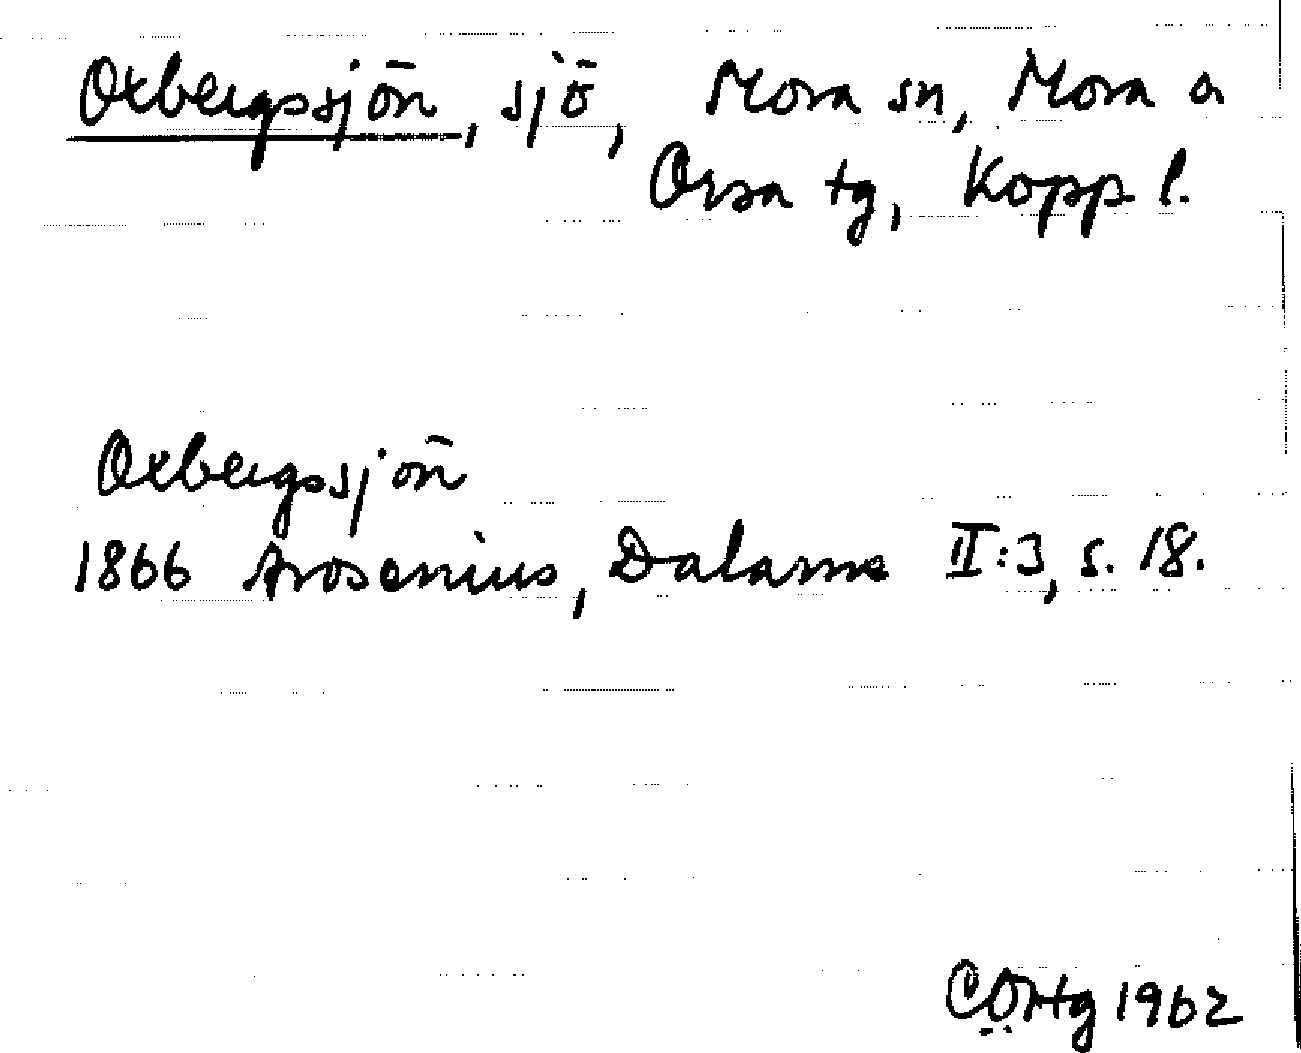 Oxbergssjön, sjö, Mora sn, Mora o
Orsa tg, Kopp l.
Oxbergssjön
1866 Arosenius, Dalarne II:3, s. 18.
1962